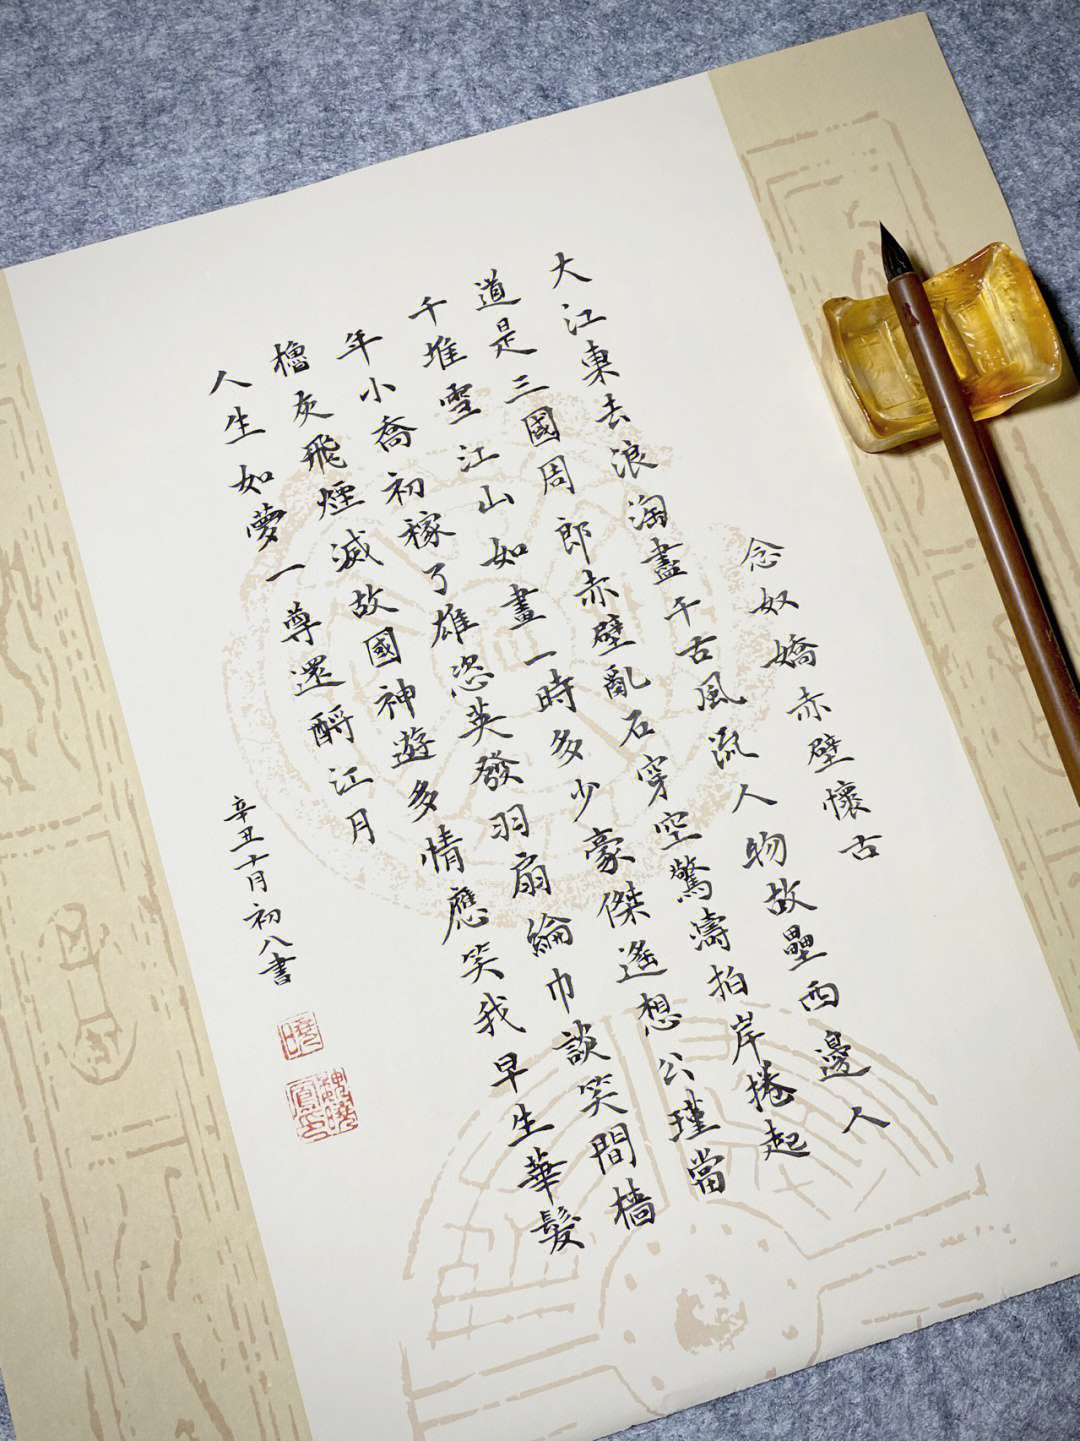 念奴嬌赤壁懷古
大江東去浪淘盡千古風流人物故壘西邊人
道是三國周郎赤壁亂石穿空驚濤拍岸捲起
千堆雪江山如畫一時多少豪傑遙想公瑾當
年小喬初稼了雄恣英發羽扇綸巾談笑間檣
櫓灰飛煙滅故國神遊多情應笑我早生華髮
人生如夢一尊還酹江月
辛丑十月初八書
曉
魏曉鳳印